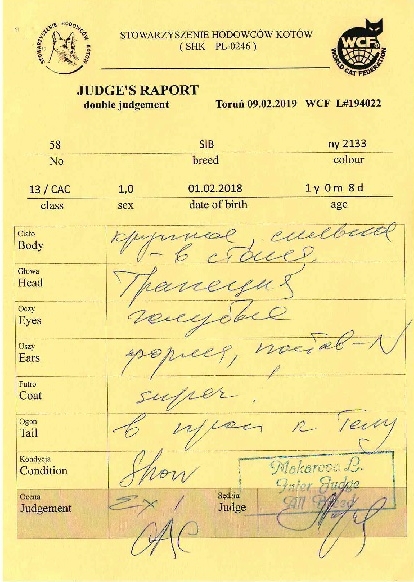 STOWARZYSZENIE HODOWCÓW KOTÓW
( SHK PL-0246 )
STOWARZYSZENIE HODOWCÓW KOTÓW
WCF
WORLD CAT FEDERATION
JUDGE'S RAPORT
double judgement Toruń 09.02.2019 WCF L#194022
58 SIB ny 2133
No breed colour
13 / CAC 1,0 01.02.2018 1 y 0 m 8 d
class sex date of birth age
Ciało
Body крупное, сильное
- в стадия,
Głowa
Head Трапеция
Oczy
Eyes голубые
Oszy
Ears форма, постав-N
Futro
Coat super!
Ogon
Tail в проп к телу
Kondycja
Condition Show
Makarova L.
Inter Judge
All Breed
Ocena
Judgement EX 1
Sędzia
Judge
CAC